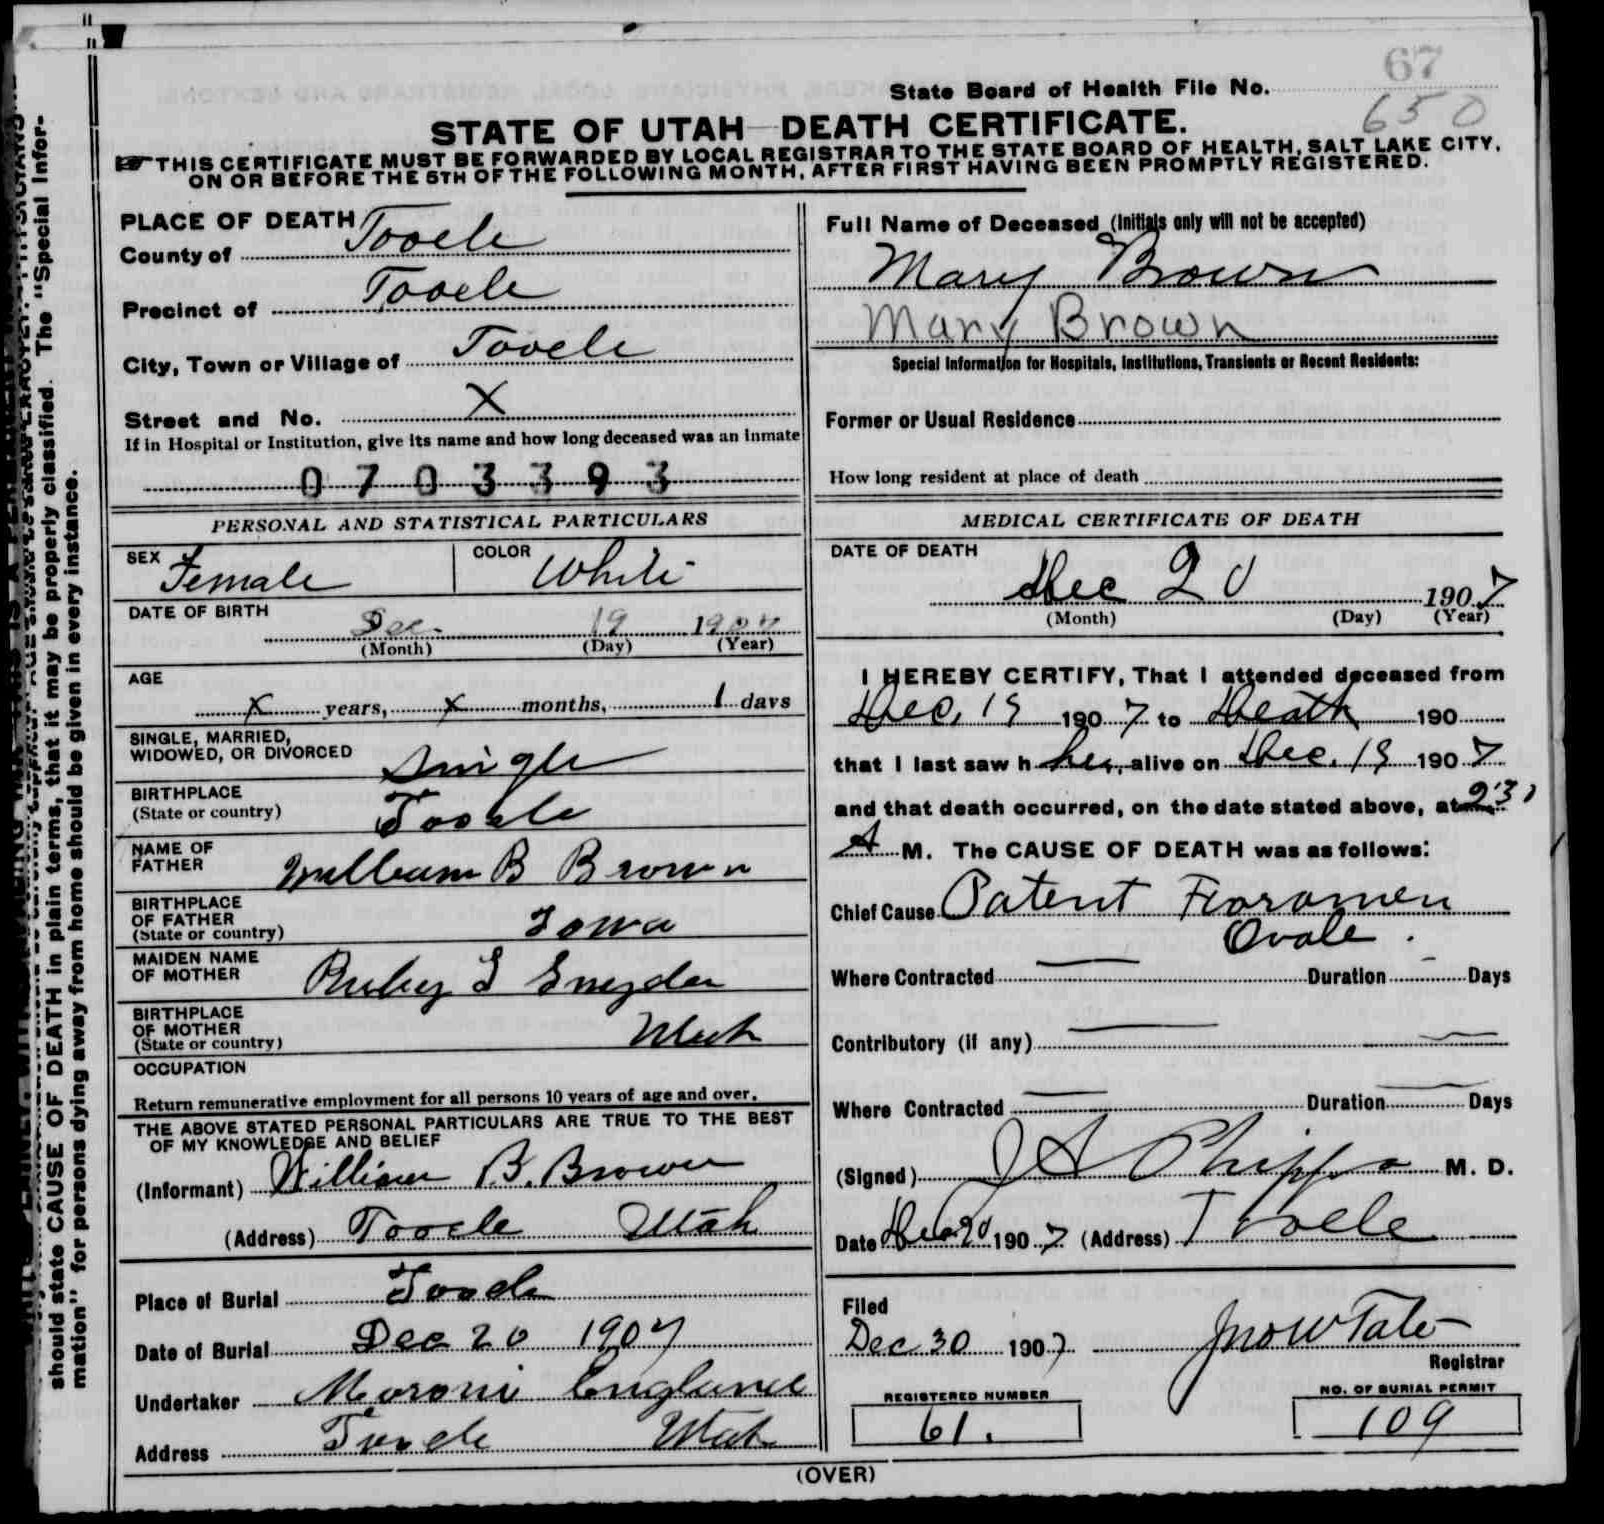 67
State Board of Health File No.
650
STATE OF UTAH—DEATH CERTIFICATE.
THIS CERTIFICATE MUST BE FORWARDED BY LOCAL REGISTRAR TO THE STATE BOARD OF HEALTH, SALT LAKE CITY,
ON OR BEFORE THE 5TH OF THE FOLLOWING MONTH, AFTER FIRST HAVING BEEN PROMPTLY REGISTERED.
should state CAUSE OF DEATH in plain terms, that it may be properly classified. The "Special Infor-
mation" for persons dying away from home should be given in every instance.
PLACE OF DEATH
County of Tooele
Precinct of Tooele
City, Town or Village of Tooele
Street and No. X
If in Hospital or Institution, give its name and how long deceased was an inmate
0703393
PERSONAL AND STATISTICAL PARTICULARS
SEX Female COLOR White
DATE OF BIRTH
Dec. 19 1907
(Month) (Day) (Year)
AGE
x years, x months, 1 days
SINGLE, MARRIED,
WIDOWED, OR DIVORCED Single
BIRTHPLACE
(State or country) Tooele
NAME OF
FATHER William B Brown
BIRTHPLACE
OF FATHER
(State or country) Iowa
MAIDEN NAME
OF MOTHER Ruby S Snyder
BIRTHPLACE
OF MOTHER
(State or country) Utah
OCCUPATION
Return remunerative employment for all persons 10 years of age and over.
THE ABOVE STATED PERSONAL PARTICULARS ARE TRUE TO THE BEST
OF MY KNOWLEDGE AND BELIEF
(Informant) William B. Brown
(Address) Tooele Utah
Place of Burial Tooele
Date of Burial Dec 20 1907
Undertaker Moroni England
Address Tooele Utah
Full Name of Deceased (Initials only will not be accepted)
Mary Brown
Mary Brown
Special Information for Hospitals, Institutions, Transients or Recent Residents:
Former or Usual Residence
How long resident at place of death
MEDICAL CERTIFICATE OF DEATH
DATE OF DEATH
Dec 20 1907
(Month) (Day) (Year)
I HEREBY CERTIFY, That I attended deceased from
Dec. 19 1907 to Death 190
that I last saw h her, alive on Dec. 19 1907
and that death occurred, on the date stated above, at
A M. The CAUSE OF DEATH was as follows:
Chief Cause Patent Foramen
Ovale.
Where Contracted — Duration - Days
Contributory (if any) —
Where Contracted — Duration — Days
(Signed) J A Phipps M. D.
Date Dec 20 1907 (Address) Tooele
Filed
Dec 30 1907 Jno W Tate
Registrar
REGISTERED NUMBER
61.
NO. OF BURIAL PERMIT
109
(OVER)